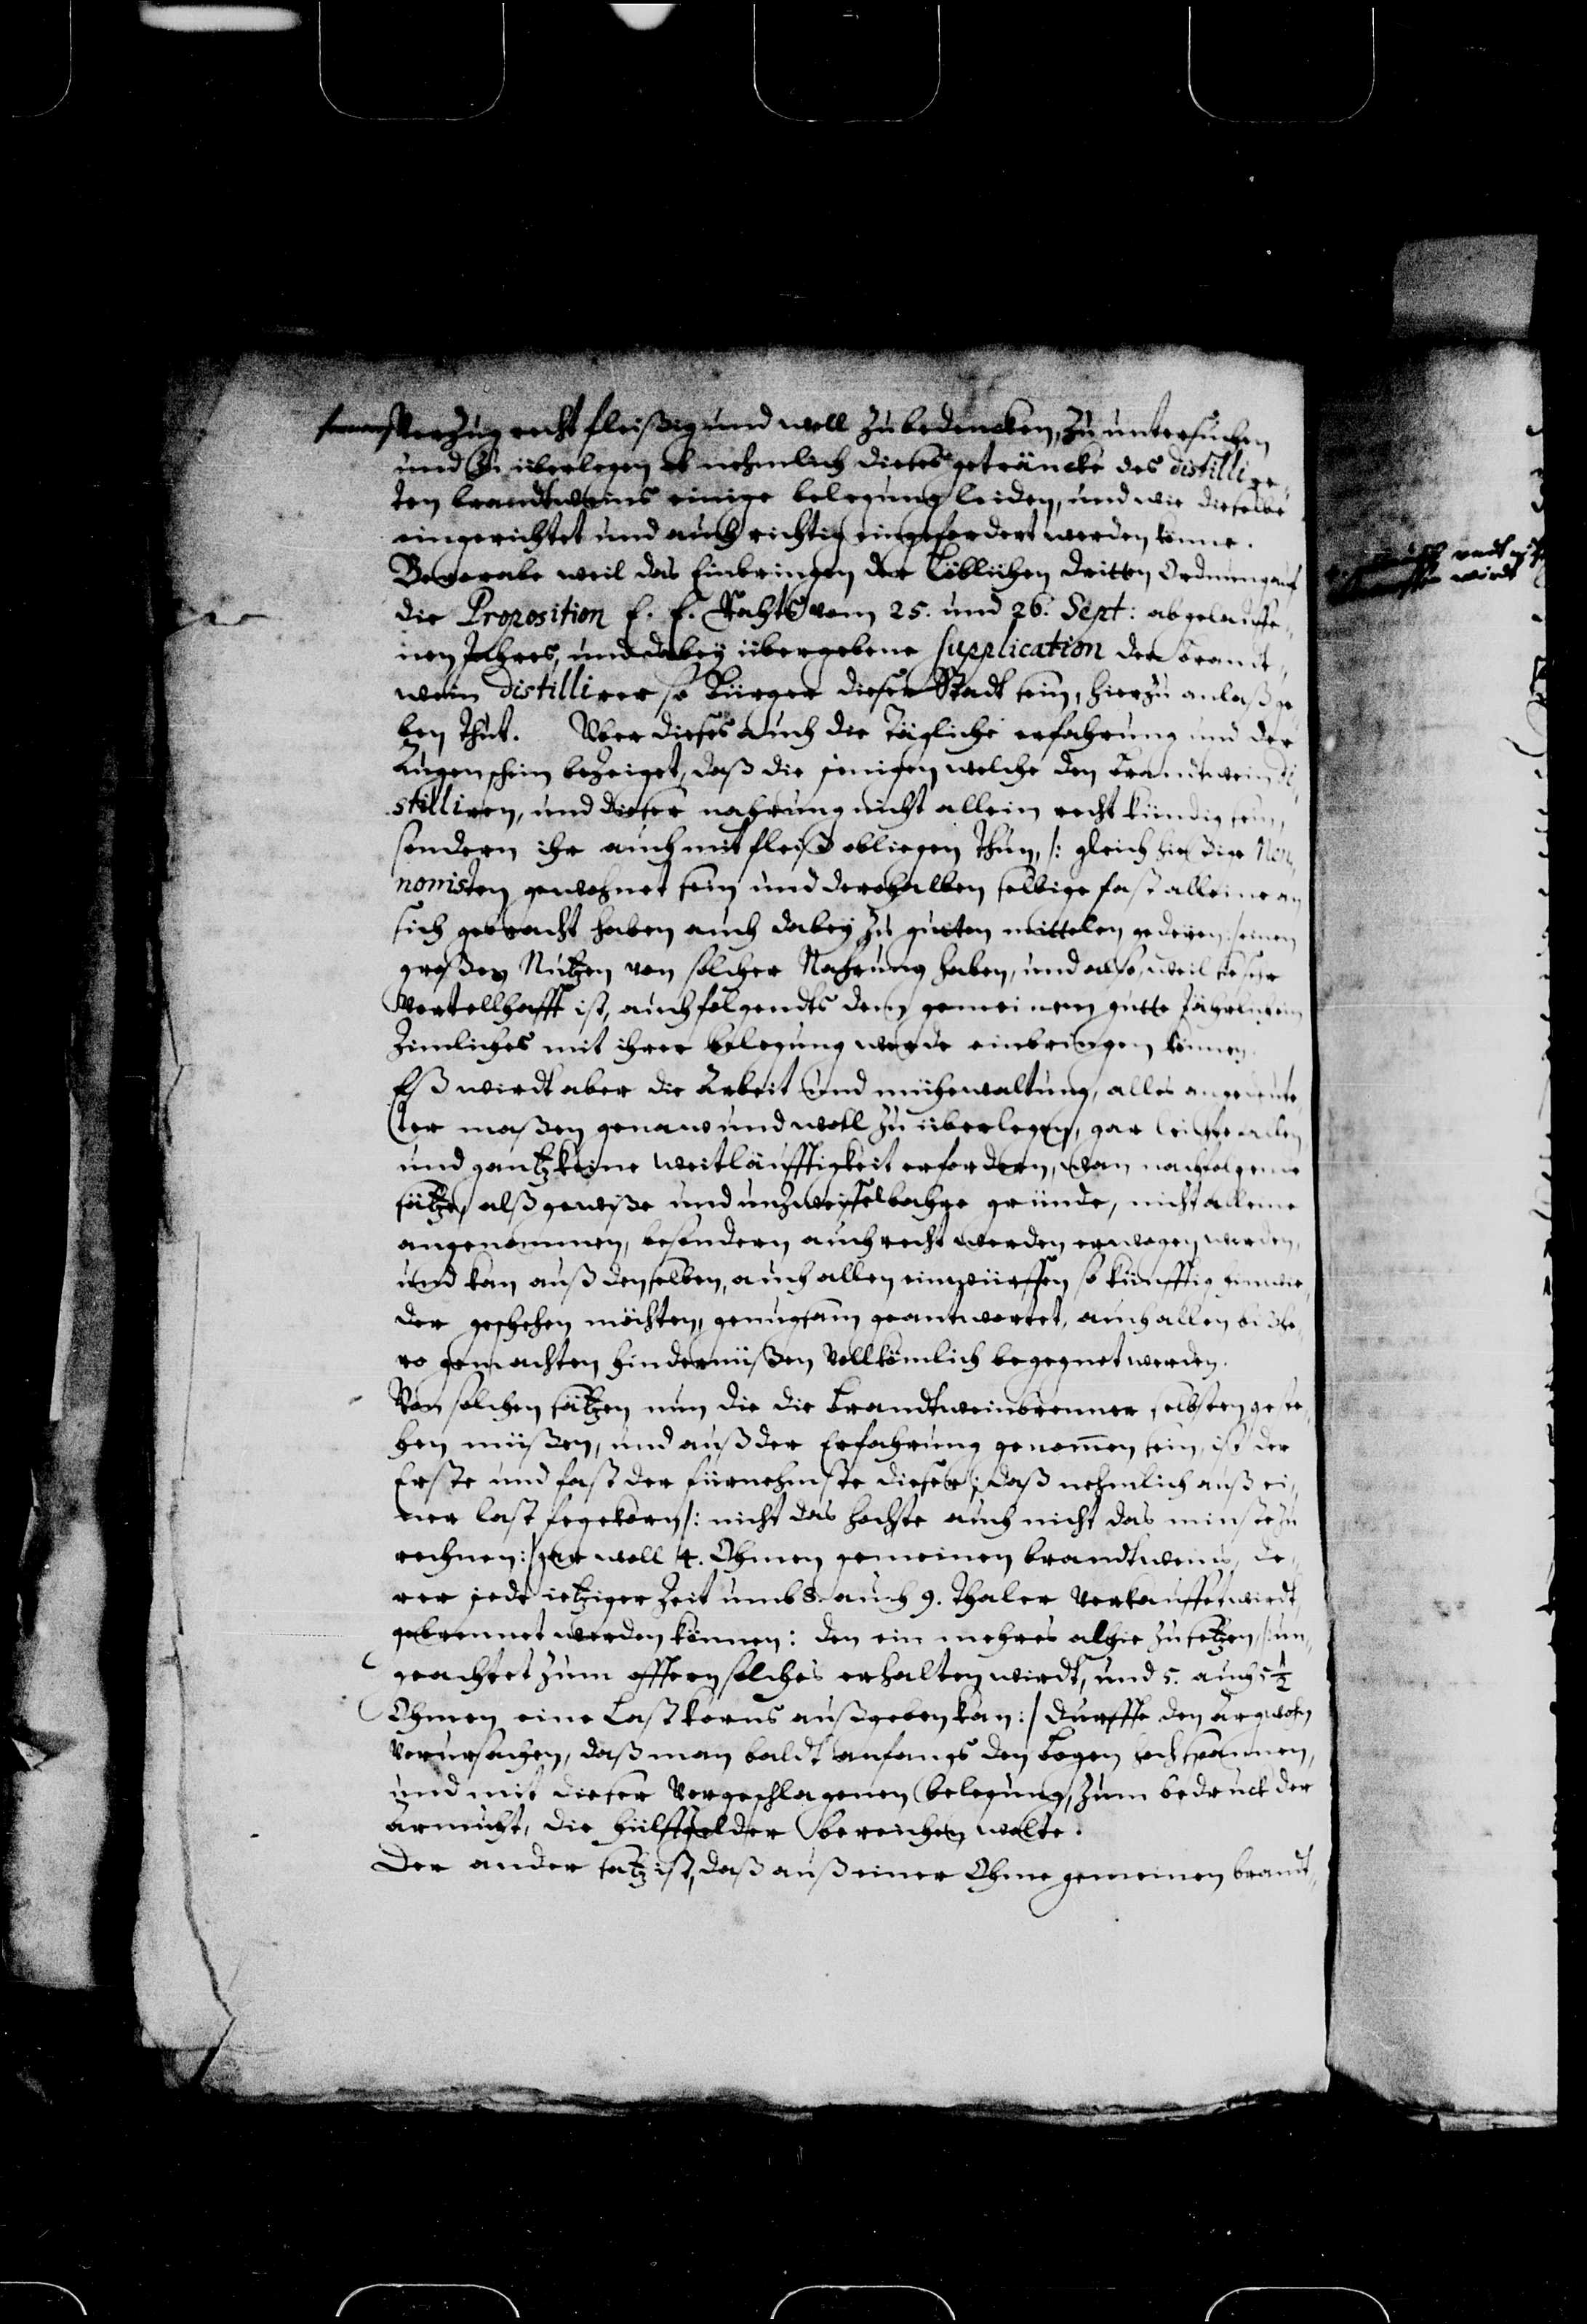 Verzug recht fleißig und woll zu bedencken, zu untersuchen
und zu überlegen ob nehmlich dieses geträncke des distillir
ten brandtweins einige belegung leiden, und wie dieselbe
eingerichtet und auch richtig eingefordert werden könne.
Bevorabe weil das Einbringen der Löblichen dritten Ordnung auf
die Proposition E. E. Rahts vom 25. und 26. Sept: abgelauffe,,
nen Jahres, und dabey übergebene Supplication der brandt,,
wein distillirer so Bürger dieser Stadt sein, hierzu anlaß ge,,
ben thut. Uber dieses auch die Tägliche erfahrung und der
Augenschein bezeiget, daß die jenigen welche den brandtwein di,,
stilliren, und dieser nahrung nicht allein recht kündig sein,
sondern ihr auch mit fleiß obliegen thun, /: gleich hiesige Non,,
nonisten gewohnet sein und derohalben selbige fast alleine an
sich gebracht haben auch dabey zu gutten mittelen gedeyen: / einen
großen Nutzen von solcher Nahrung haben, und also, weil sie sehr
Vortellhafft ist, auch folgendts dem gemeinem gutte Jährlich ein
Zimliches mit ihrer belegung werde einbringen können.
Eß wirdt aber die Arbeit und mühewaltung, alles angedeute,,
ter maßen genaw und woll zu überlegen, gar leicht fallen
und gantz keine Weitläufftigkeit erfordern, wan nachfolgende
sätze, alß gewiße und unzweiffelbahre gründe, nicht alleine
angenommen, besondern auch recht werden erwogen werden,
und kan auß denselben, auch allen einwürffen so künfftig hinwie,,
der geschehen möchten, genugsam geantwortet, auch allen bißhe,,
ro gemachten hindernüßen Vollkömlich begegnet werden.
Von solchen sätzen nun die die Brandtweinbrenner selbsten geste,,
hen müßen, und auß der Erfahrung genommen sein, ist der
Erste und fast der fürnehmste dieser; daß nehmlich auß ei,,
ner last segekorn /: nicht das hochste auch nicht das minste zu
rechnen: / gar woll 4. Ohmen gemeinen brandtweins, de,,
rer jede ietziger Zeit umb 8. auch 9. Thaler Verkauffet wirdt,
gebrennet werden können: den ein mehres alhie zu setzen, /: un,,
geachtet zum offtern solches erhalten wirdt, und 5. auch 5½
Ohmen eine Last korns außgeben kan: / durffte den argwohn
Verursachen, daß man baldt anfangs den bogen hoch spannen,
und mit dieser Vorgeschlagenen belegung, zum bedruck der
armuht, die hülffgelder bereichen wolte.
Der ander satz ist, daß auß einer Ohme gemeinen brandt,,
wirdt